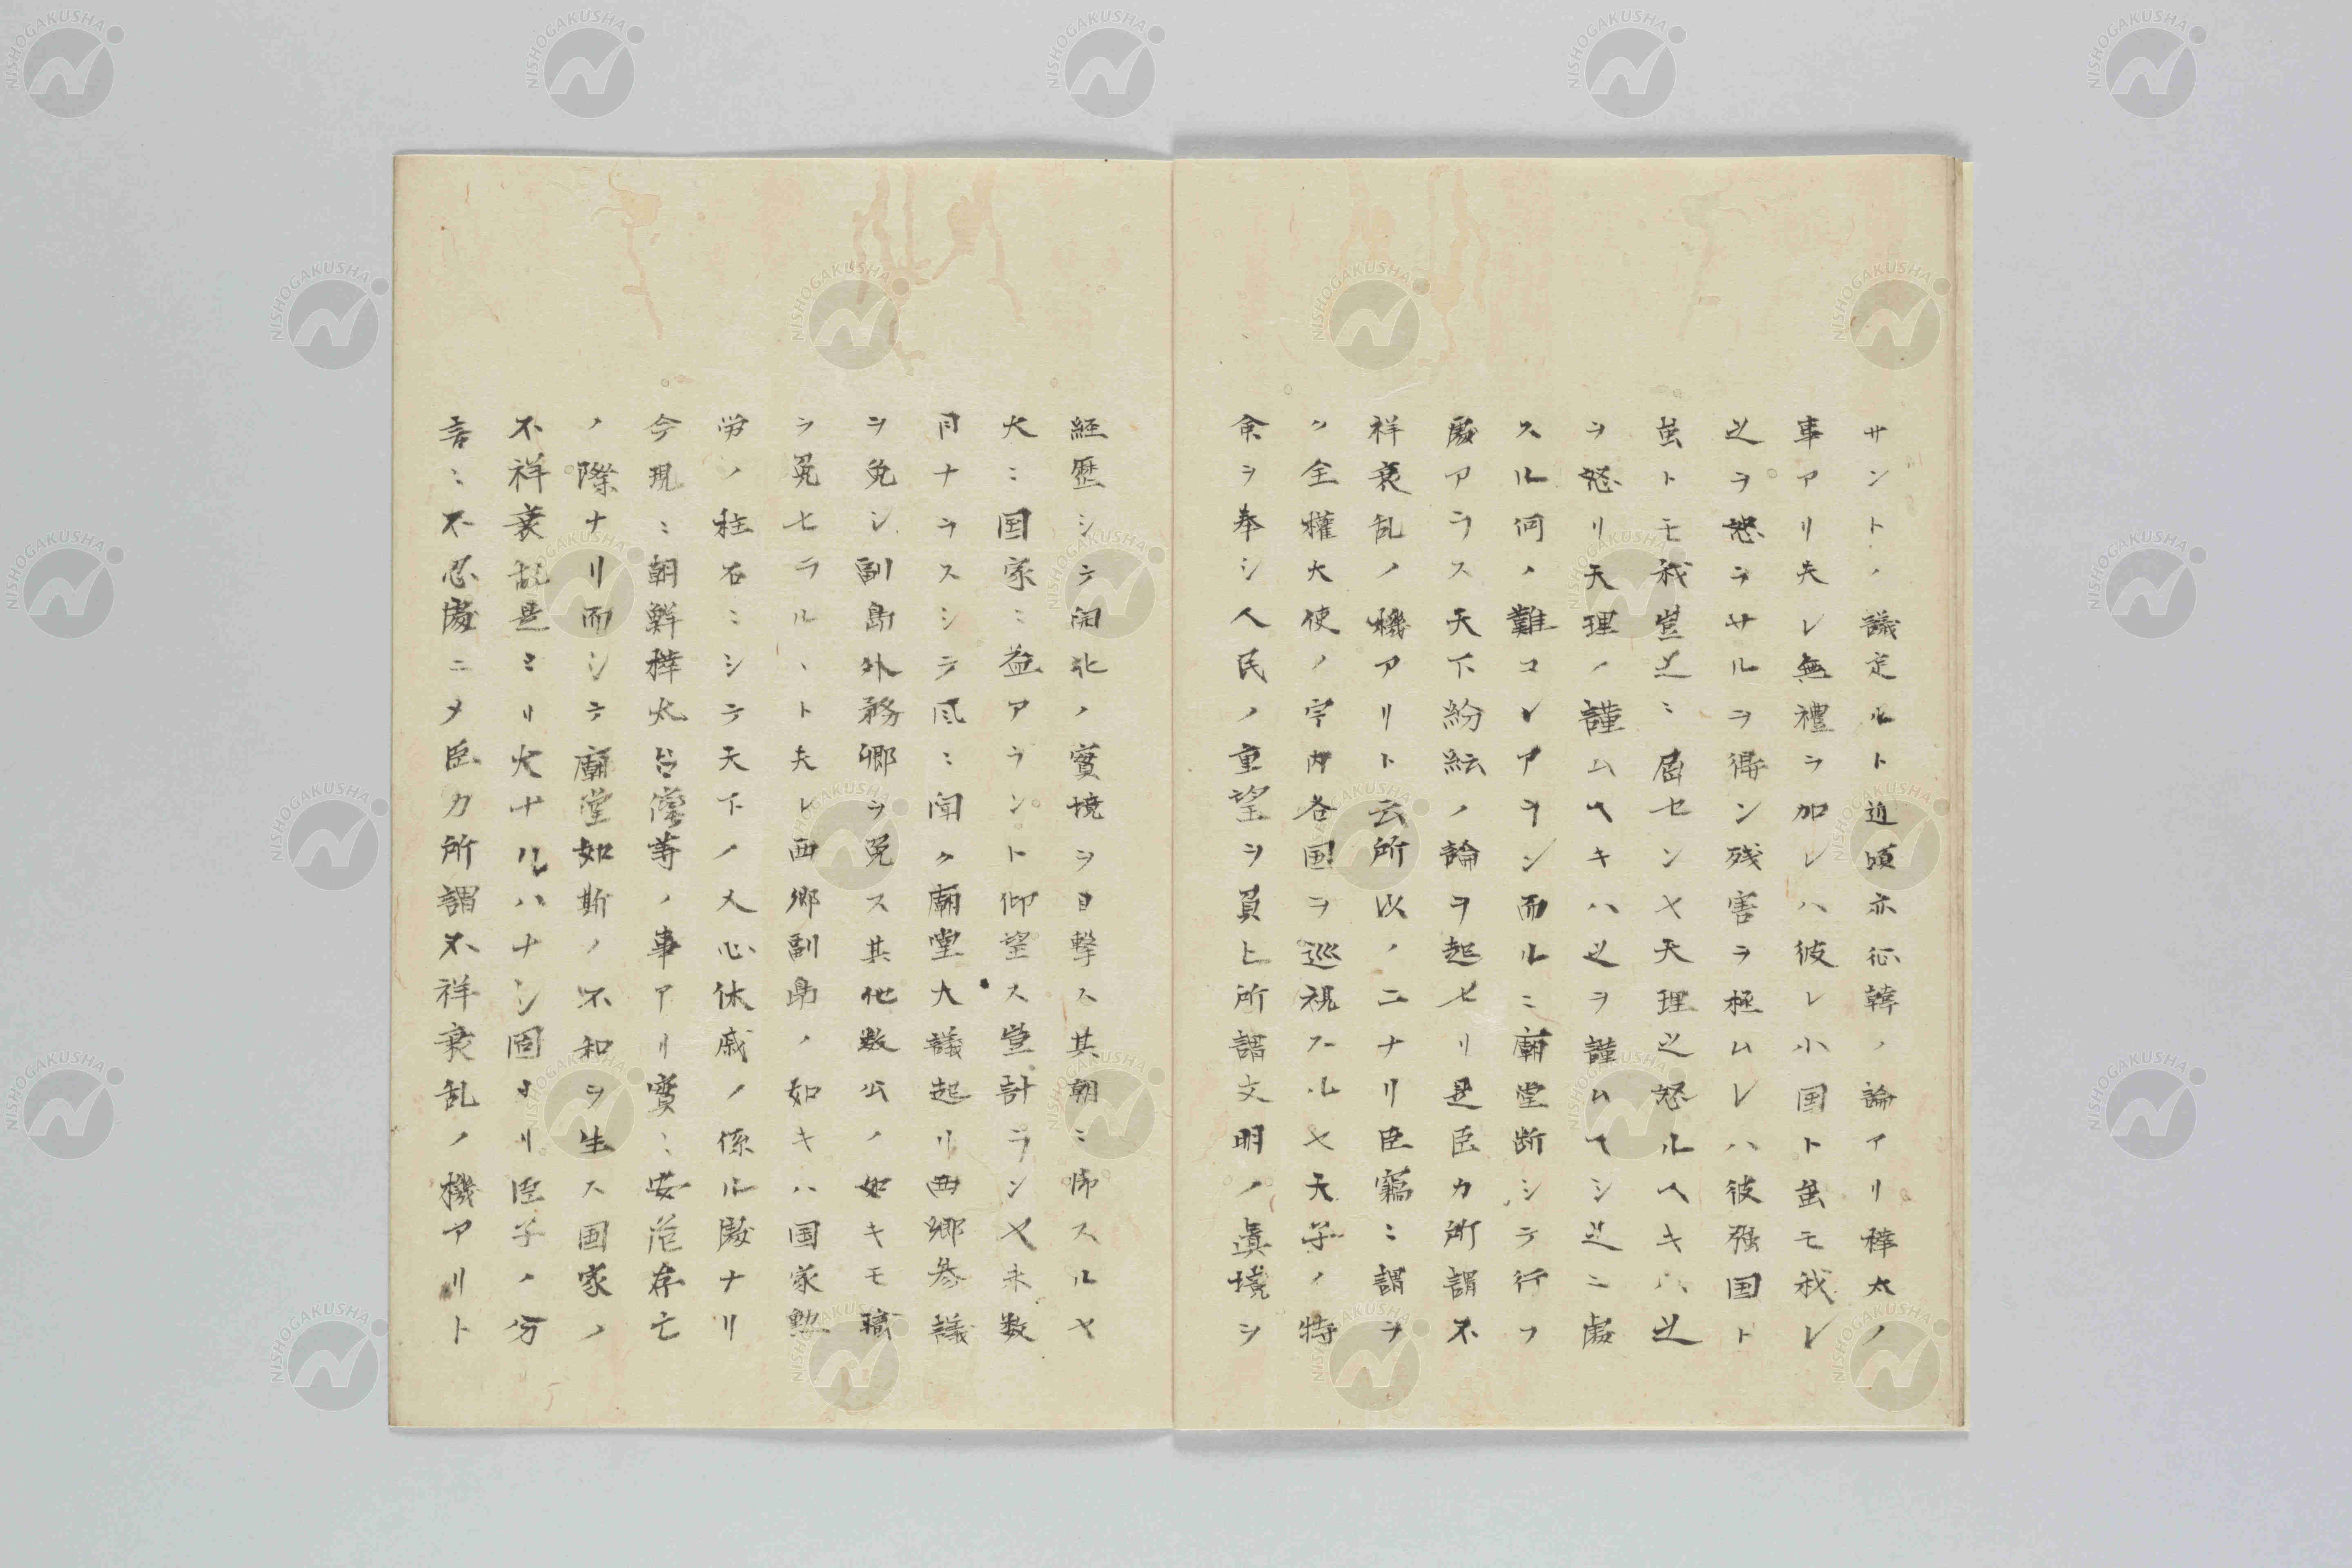 サントノ議定ルト近頃亦征韓ノ論アリ樺太ノ
事アリ夫レ無禮ヲ加レハ彼レ小国ト虽モ我レ
之ヲ怒ラサルヲ得ン残害ヲ極ムレハ彼強国ト
虽トモ我豈之ニ屈センヤ天理之怒ルヘキハ之
ヲ怒リ天理ノ謹ムヘキハ之ヲ謹ムヘシ之ニ處
スル何ノ難コレアラン而ルニ廟堂断シテ行フ
處アラス天下紛紜ノ論ヲ起セリ是臣カ所謂不
祥衰乱ノ機アリト云所以ノ二ナリ臣竊ニ謂ヲ
ク全權大使ノ宇内各国ヲ巡視スルヤ天子ノ特
余ヲ奉シ人民ノ重望ヲ負ヒ所謂文明ノ眞境ヲ
経歴シテ開化ノ實境ヲ目撃ス其朝ニ帰スルヤ
大ニ国家ニ益アラント仰望ス豈計ランヤ未数
月ナラスシテ風ニ聞ク廟堂大議起リ西郷参議
ヲ免シ副島外務卿ヲ免ス其他数公ノ如キモ職
ヲ免セラルヽト夫レ西郷副島ノ如キハ国家勲
労ノ柱石ニシテ天下ノ人心休戚ノ係ル處ナリ
今現ニ朝鮮樺太台湾等ノ事アリ實ニ安危存亡
ノ際ナリ而シテ廟堂如斯ノ不和ヲ生ス国家ノ
不祥衰乱是ヨリ大ナルハナシ固ヨリ臣子ノ分
言ニ不忍處ニメ臣カ所謂不祥衰乱ノ機アリト
NISHOGAKUSHA